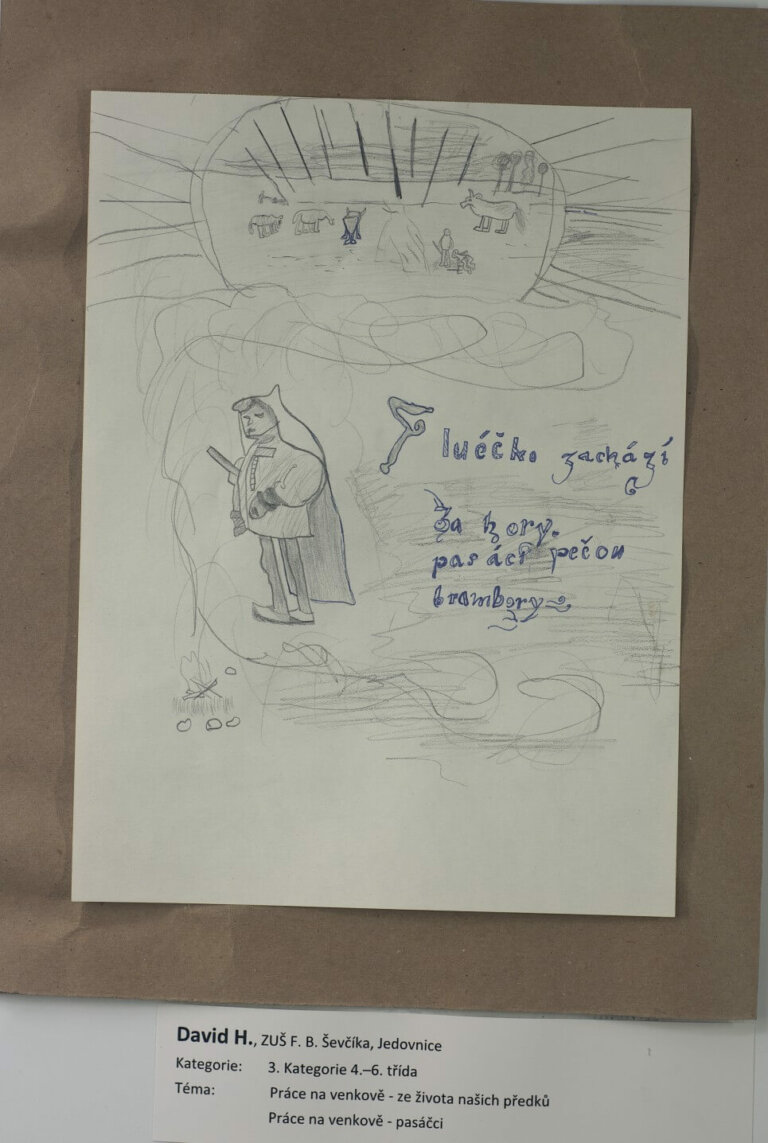 Sluéčko zachází
Za hory.
pasáčī pečou
brambory
David H., ZUŠ F. B. Ševčíka, Jedovnice
Kategorie: 3. Kategorie 4.–6. třída
Téma: Práce na venkově - ze života našich předků
Práce na venkově - pasáčci